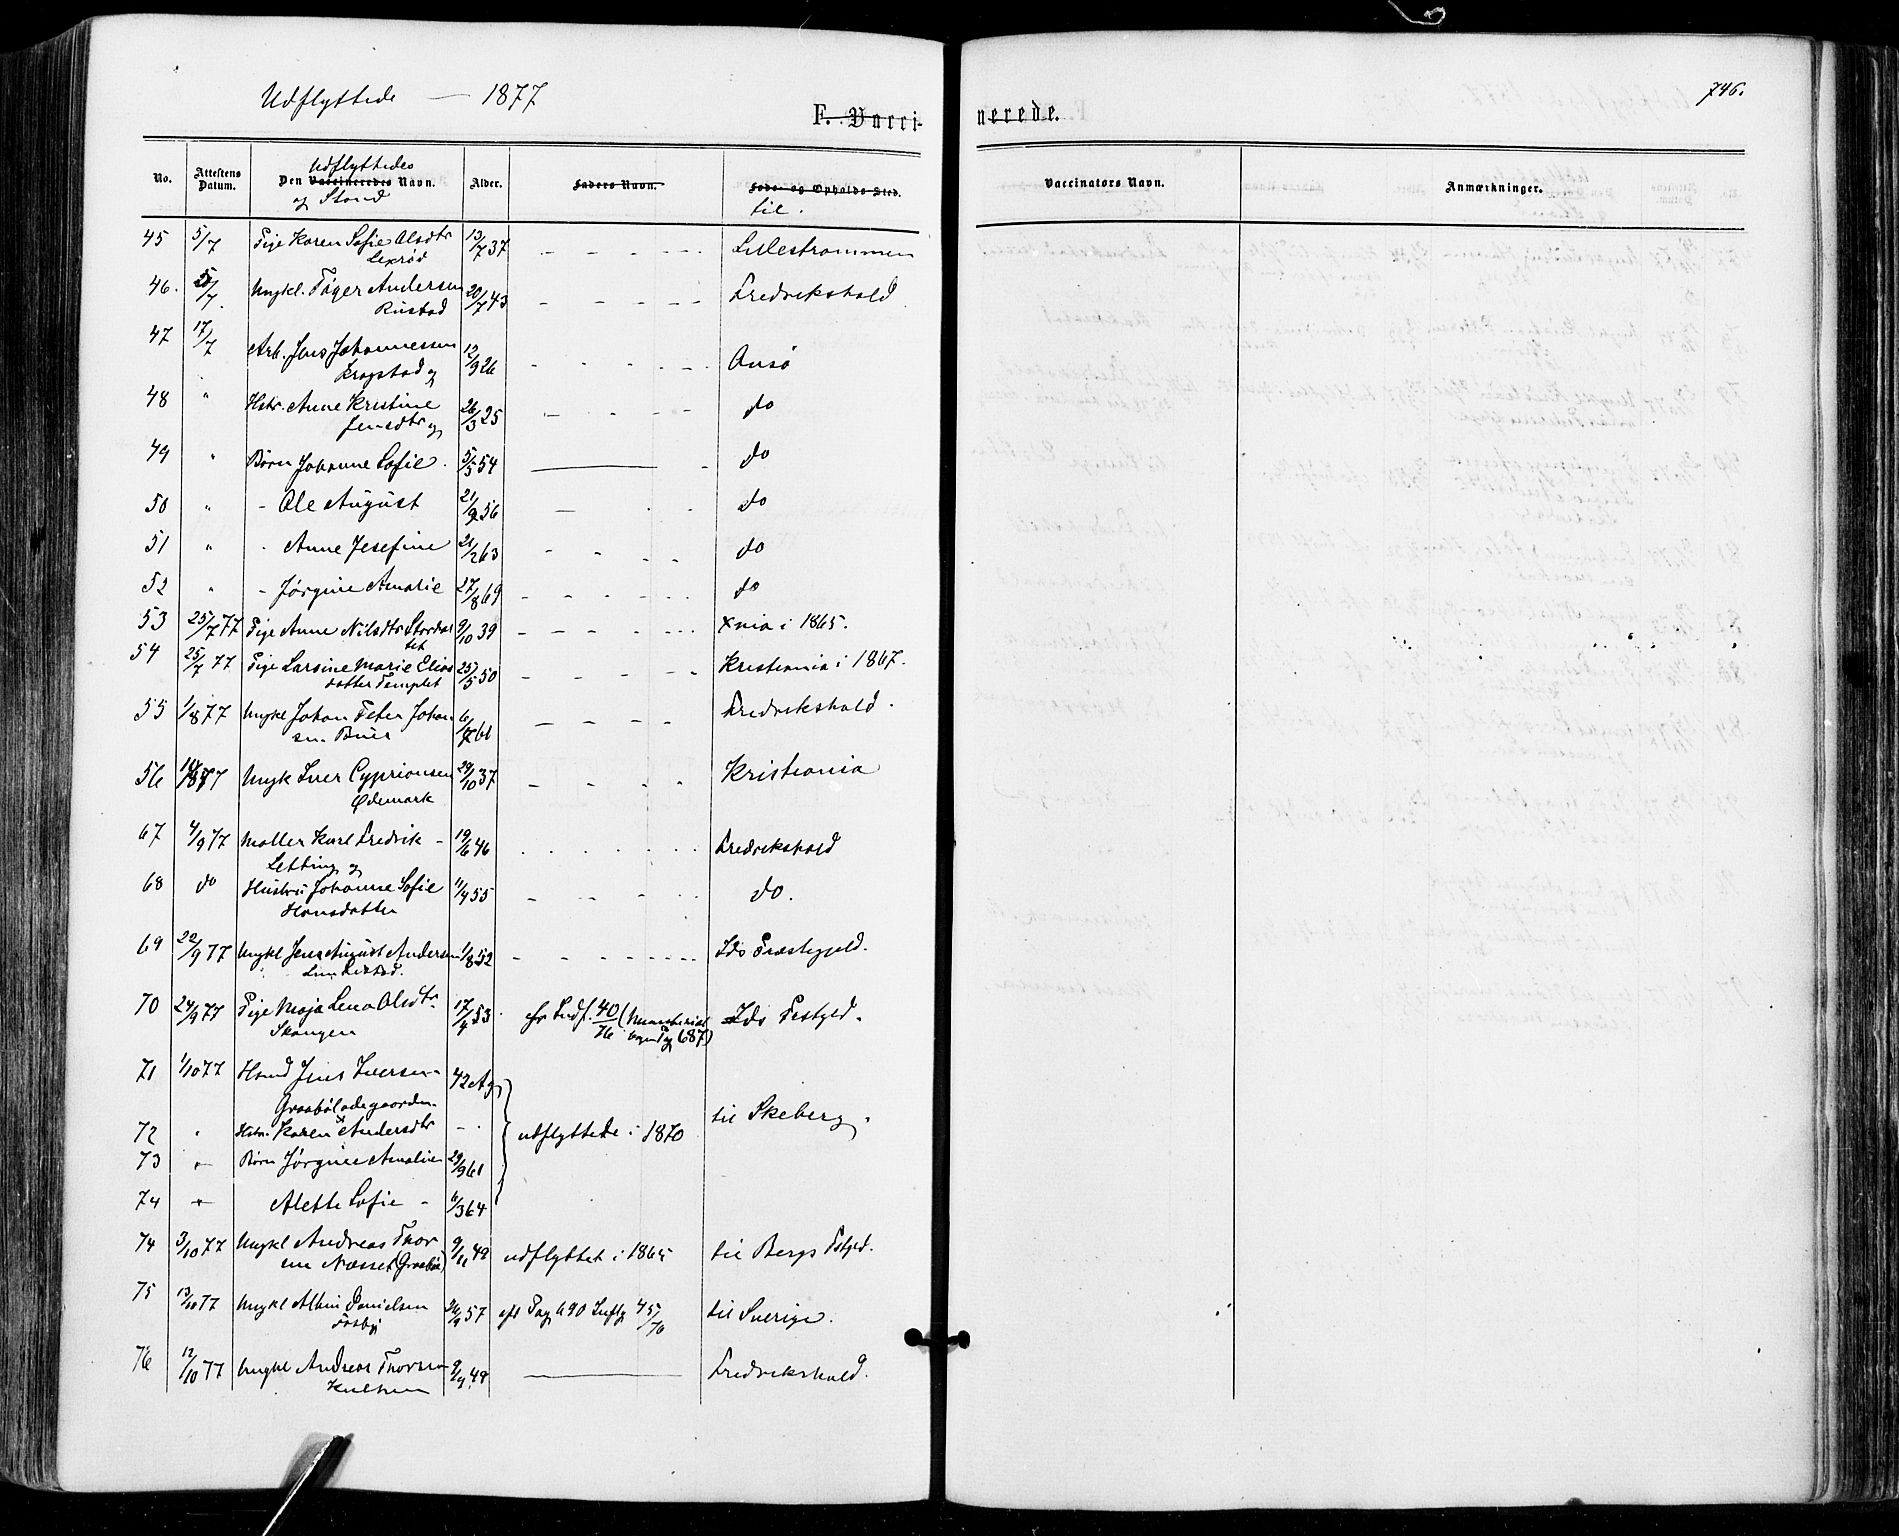 Udflyttede — 1877
F. Vacci-
nerede.
746.
No. Attestens Datum. Den Vaccineredes Navn. Udflyttedes og Stand Alder. Faders Navn. Føde- og Opholds Sted. til. Vaccinators Navn. Anmærkninger.
45 5/7 Pige Karen Sofie Olsdtr 13/7 37 Lillestrømmen
Lexrød
46. 5/7. Ungkl. Tøger Andersen 20/7 43 Fredrikshald
Rustad
47 17/7 Arb. Jens Johannessen 12/9 26 Onsø
Krogstad og
48 " Hstr. Anne Kristine 26/3 25 do
Jensdtr og
49 " Børn Johanne Sofie. 5/5 54 do
50 " - Ole August 21/9 56 do
51 " - Anne Josefine 21/2 63 do
52 " - Jørgine Amalie 27/8 69 do
53 25/7 77 Pige Anne Nilsdtr Stordal 9/10 39 Xnia i 1865.
tet
54 25/7 77 Pige Larsine Marie Elias 25/5 50 Kristiania i 1867.
datter Templet
55 1/8 77 Ungkl Johan Peter Johan Fredrikshald.
sen Buer
56 77 Ungk Iver Cyprionsen 29/10 37 Kristiania
Ødemark
67 4/9 77 Møller Karl Fredrik - 19/6 46 Fredrikshald
Letting og
68 do Hustru Johanne Sofie 11/4 55 do.
Hansdatter
69 22/9 77 Ungkl Jens August Andersen 1/8 52 Ids Præstegjeld.
70 24/9 77 Pige Maja Lena Olsdtr 17/4 53. cfr Indf. 40/76 (Ministerial Ids Pestgjeld.
Skougen bogen Pag 687)
71 1/10 77 Hsmd Jens Iversen 42 Ag
Graabøl ødegaarden til Skeberg.
72 " Hstr. Karen Andersdtr - udflyttede i 1870
73 - Børn Jørgine Amalie 29/9 61
74 Alette Sofie - 6/3 64
74 3/10 77 Ungkl Andreas Thor 9/11 49 udflyttet i 1865 til Bergs Pstgjd.
sen Næsset (Graabøl)
75 13/10 77 Ungkl Albin Danielsen 26/9 57 cfr Pag 690 Indfl 45/76 til Sverige.
Fosby
76 12/10 77 Ungkl Andreas Thorsen 9/9 49 Fredrikshald.